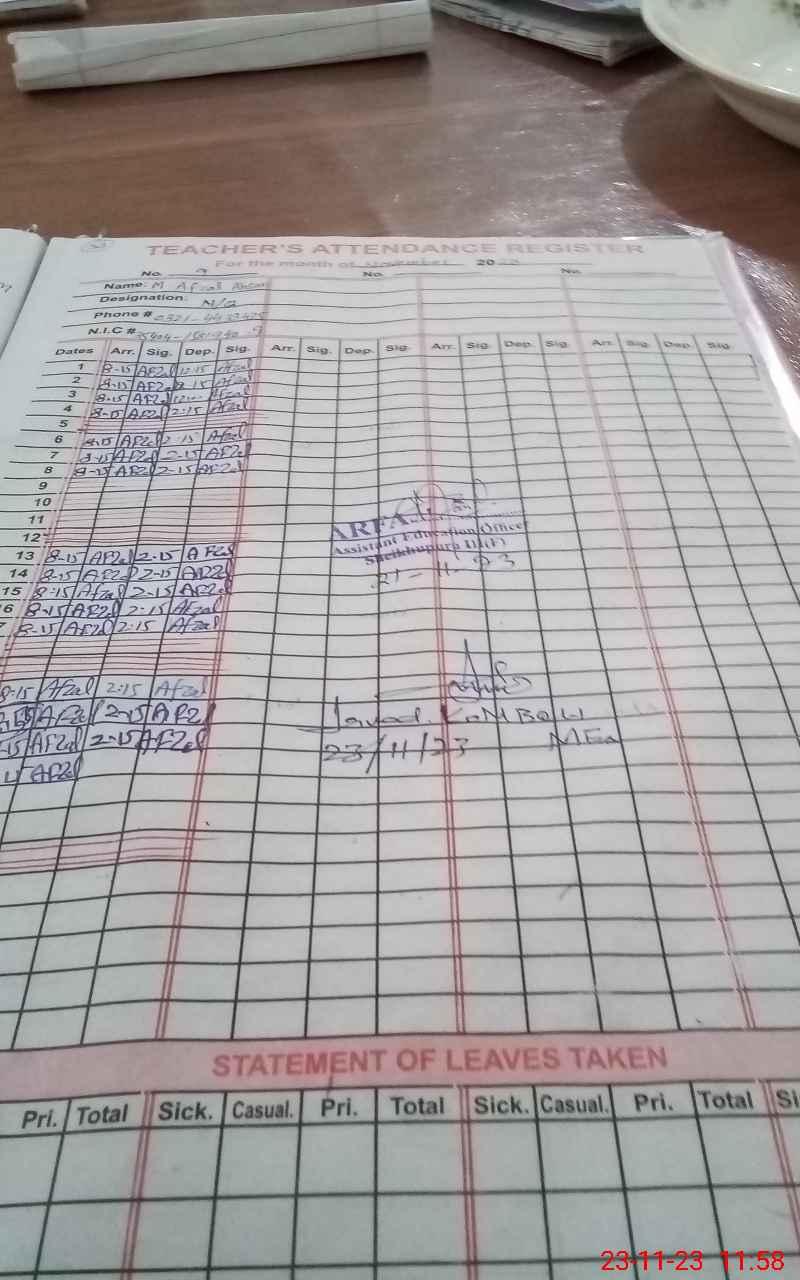 TEACHER'S ATTENDANCE REGISTER
For the month of November 20
No. 9 No. No.
Name: M Afzal
Designation: N/Q
Phone #
N.I.C #
Dates Arr. Sig. Dep. Sig. Arr. Sig. Dep. Sig. Arr. Sig. Dep. Sig. Arr. Sig. Dep. Sig.
1 8-15 AFZal 12:15 Afzal
2 8-15 AFZal 2:15 Afzal
3 8-15 AFZal Afzal
4 8-15 AFZal 2:15 Afzal
5
6 8-15 AFZal 2:15 Afzal
7 8-15 AFZal 2-15 AFZal
8 8-15 AFZal 2-15 AFZal
9
10
11
12
ARFA
Assistant Education Officer
Sheikhupura (F)
21-11-23
13 8-15 AFZal 2-15 AFZal
14 8-15 AFZal 2-15 AFZal
15 8-15 Afzal 2-15 AFZal
16 8-15 AFZal 2:15 Afzal
7 8-15 AFZal 2:15 Afzal
8-15 Afzal 2:15 Afzal
AFZal 2-15 AFZal
15 AFZal 2-15 AFZal
AFZal
Javed KAMBOH
23/11/23 MEA
STATEMENT OF LEAVES TAKEN
Pri. Total Sick. Casual. Pri. Total Sick. Casual. Pri. Total Si
23-11-23 11.58